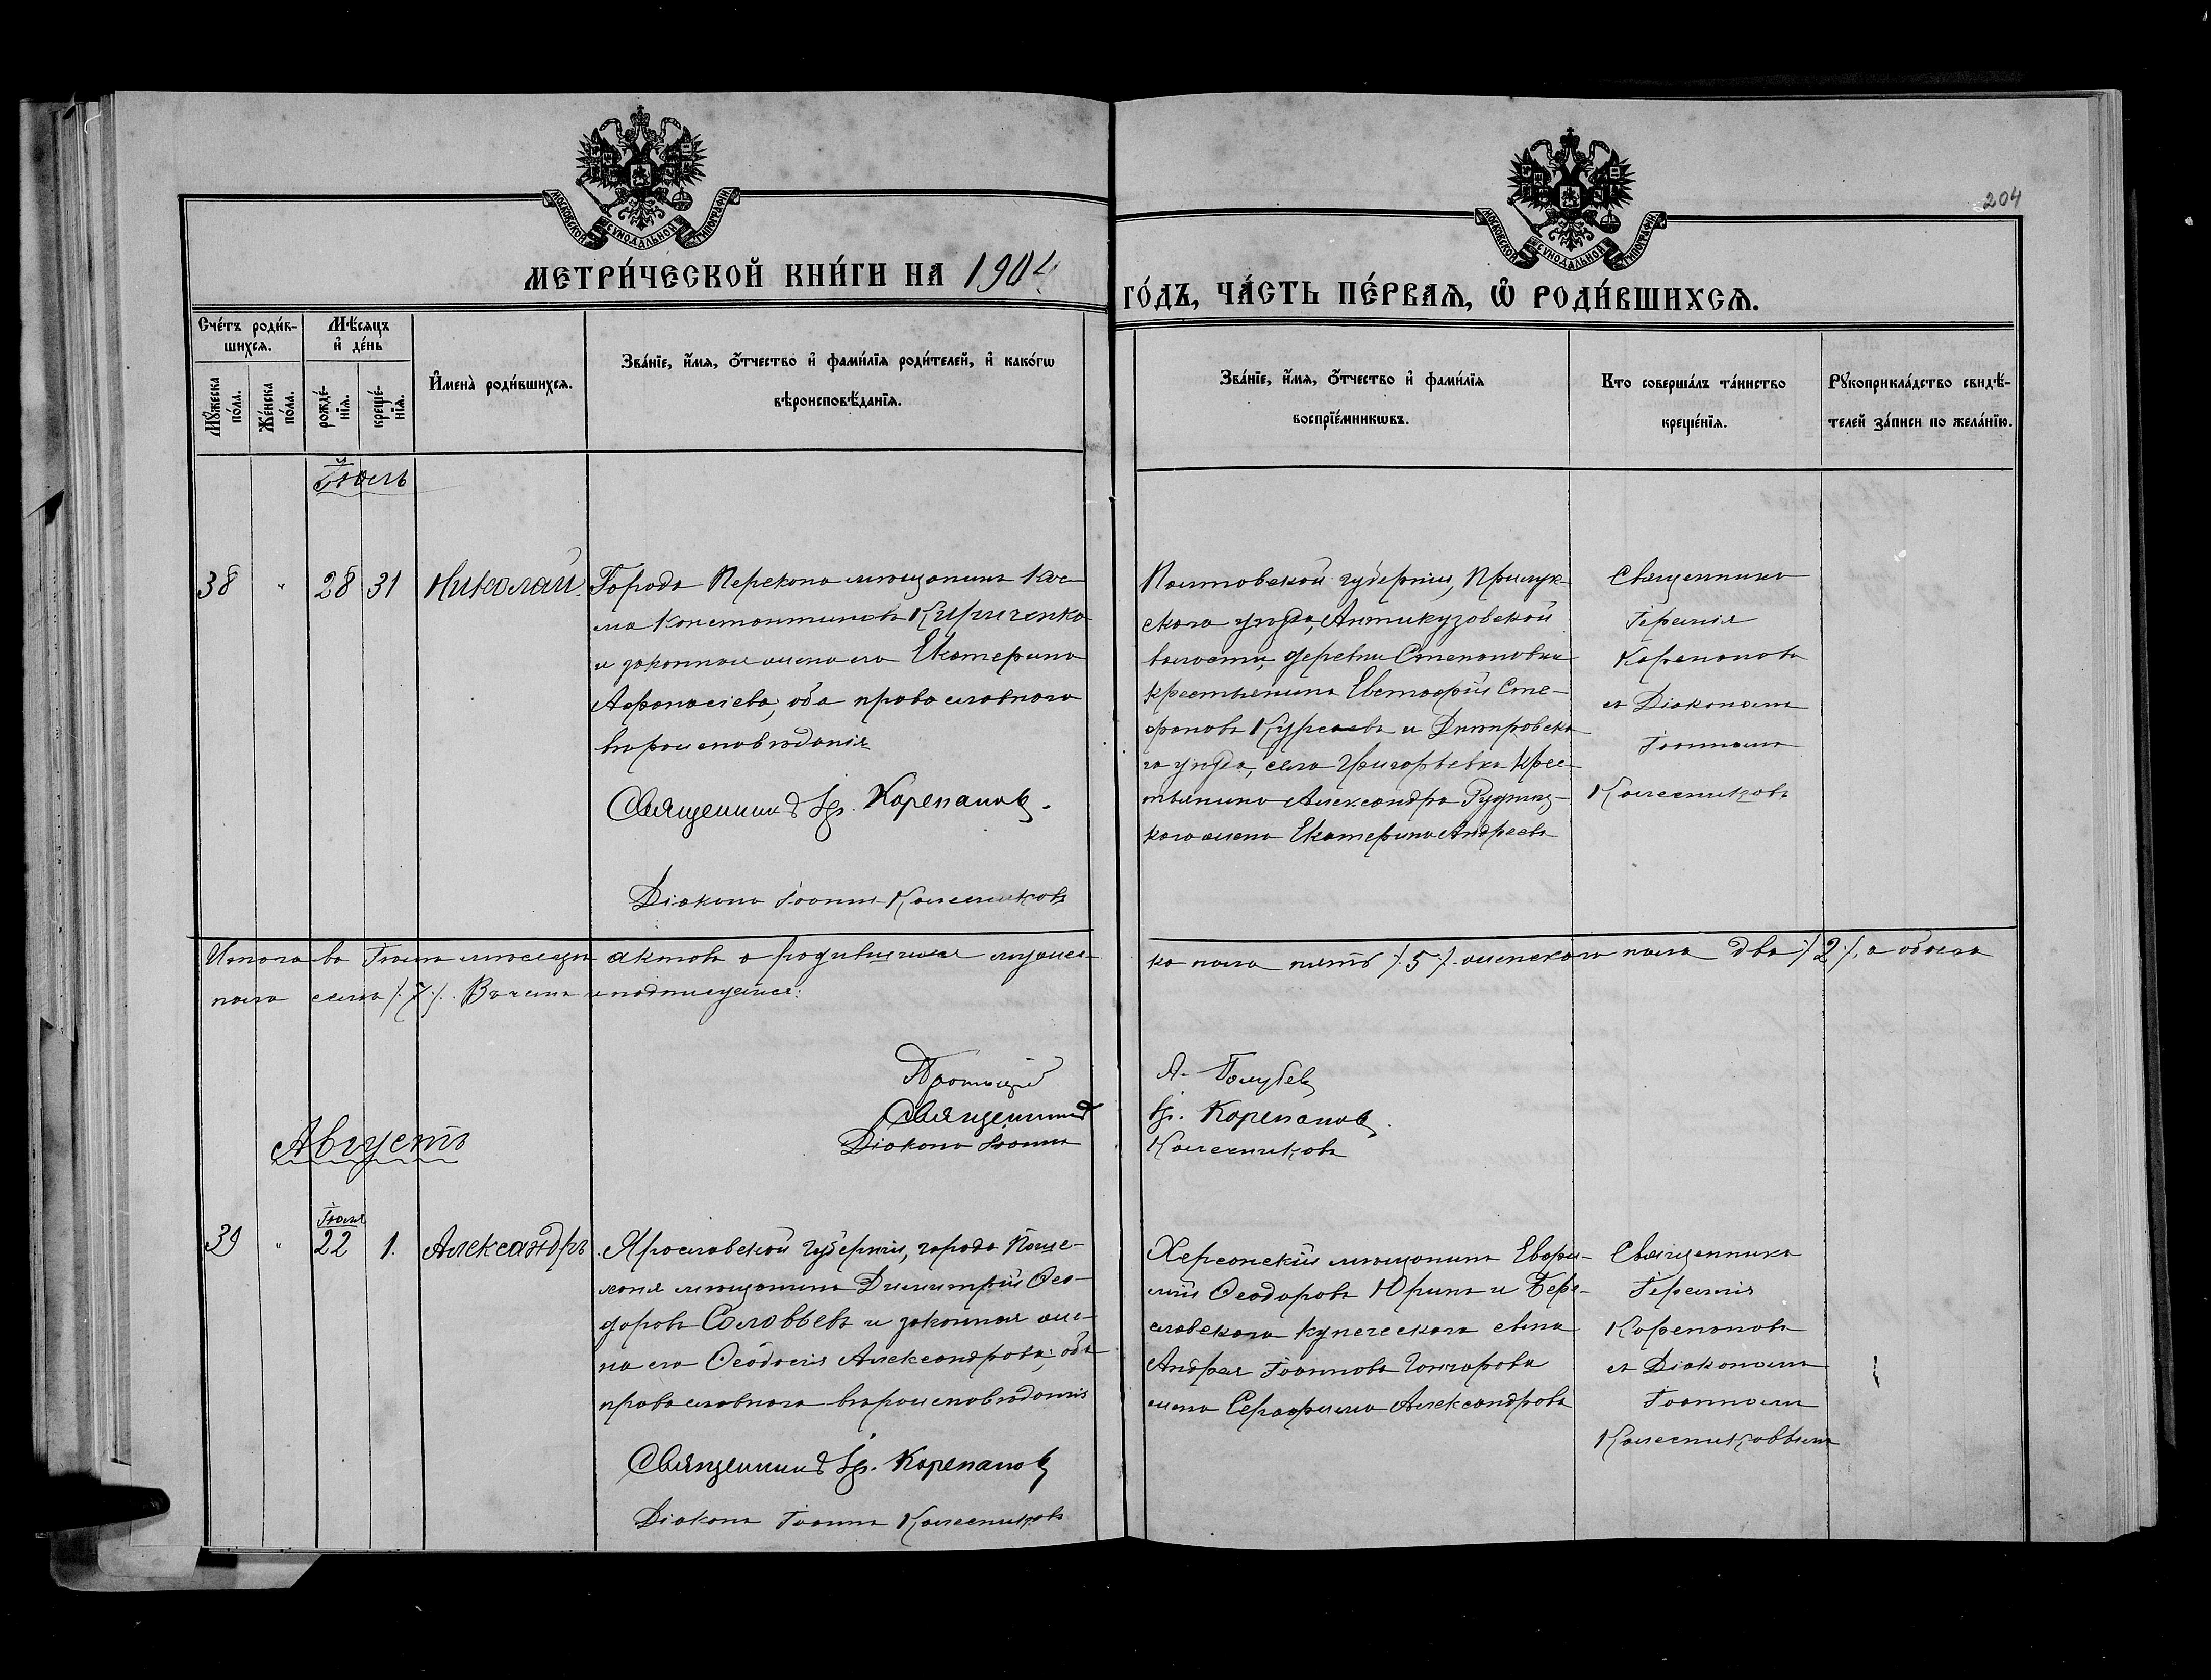 204
МОСКОВСКОЙ СѴНОДАЛЬНОЙ ТИПОГРАФІИ
МОСКОВСКОЙ СѴНОДАЛЬНОЙ ТИПОГРАФІИ
МЕТРИ́ЧЕСКОЙ КНИ́ГИ НА 1904
ГО́ДЪ, ЧА́СТЬ ПЕ́РВАѦ, Ѿ РОДИ́ВШИХСѦ.
Сче́тъ роди́в-
шихсѧ.
Мꙋ́жеска по́ла.
Же́нска по́ла.
Мѣ́сѧцъ и҆ де́нь
рожде́-нїѧ.
креще́-нїѧ.
И҆мена̀ роди́вшихсѧ.
Зва́нїе, и҆́мѧ, ѻ҆́тчество и҆ фами́лїѧ роди́телей, и҆ како́гѡ
вѣроисповѣ́данїѧ.
Зва́нїе, и҆́мѧ, ѻ҆́тчество и҆ фами́лїѧ
воспрїе́мникѡвъ.
Кто соверша́лъ та́инство
креще́нїѧ.
Рꙋкоприкла́дство свидѣ́-
телей за́писи по жела́нїю.
Іюль
38 " 28 31 Николай.
Города Перекопа мѣщанинъ Кос-
ма Константиновъ Кириченко
и законная жена его Екатерина
Афанасіева, оба православного
вѣроисповѣданія
Священникъ Кореπановъ.
Діаконъ Іоаннъ Колесниковъ
Полтавской губерніи, Прилук-
скаго уѣзда,
волости, деревни Степановки
крестьянинъ Евстафій Сте-
фановъ и Днѣпровска-
го уѣзда, села Григорьевки кре-
стьянина Александра
каго жена Екатерина Андреева
Священникъ
Корепановъ
съ Діакономъ
Іоанномъ
Колесниковъ
Итого въ Іюлѣ мѣсяцѣ актовъ о родившихся мужес-
ка пола пять /5/ женскаго пола два /2/, а обоего
пола семь /7/. Въ чемъ и подписуемся:
Протоіерей
А. Голубевъ
Священникъ
Корепановъ.
Діаконъ Іоаннъ
Колесниковъ
Августъ
Іюля
39 " 22 1. Александръ
Ярославской губерніи, города Поше-
хонья мѣщанинъ Димитрій Ѳео-
доровъ Соловьевъ и законная же-
на его Ѳеодосія Александрова, оба
православного вѣроисповѣданія
Священникъ Корепановъ
Діаконъ Іоаннъ Колесниковъ
Херсонскій мѣщанинъ Евфи-
мій Ѳеодоровъ Юринъ и Бери-
славскаго купеческаго сына
Андрея Іоаннова Гончарова
жена Серафима Александрова
Священникъ
Корепановъ
съ Діакономъ
Іоанномъ
Колесниковымъ